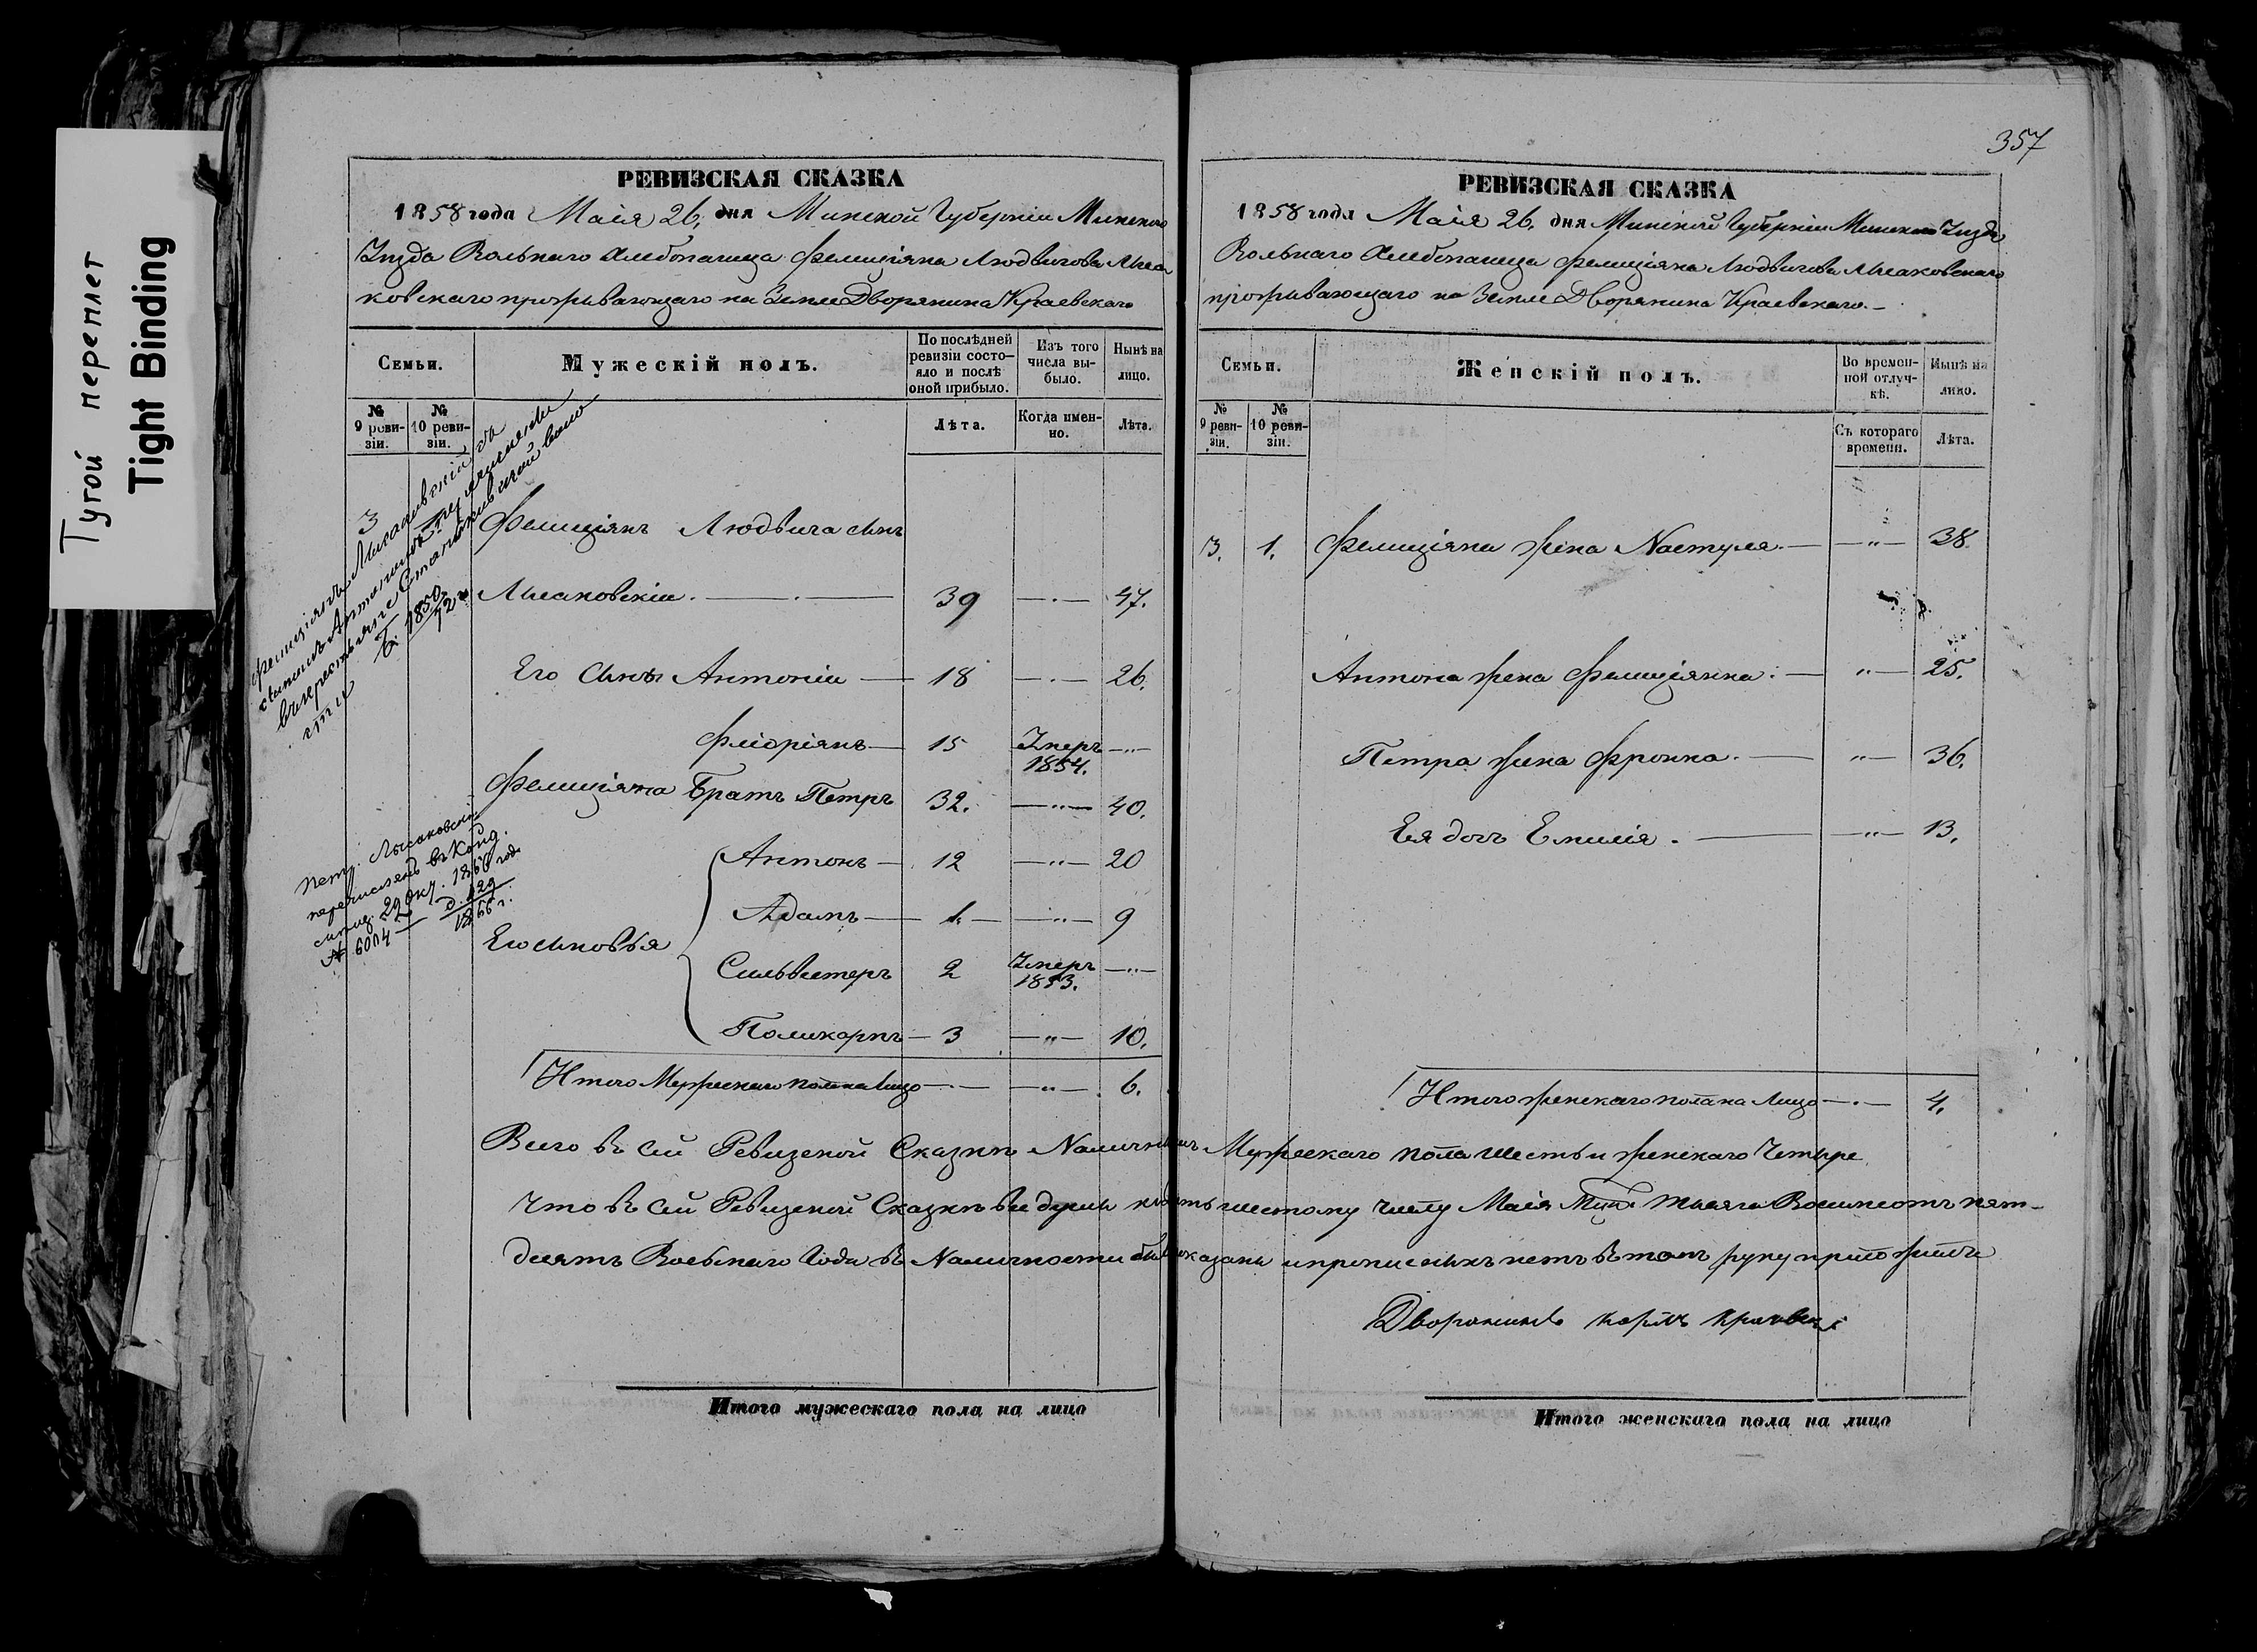 Тугой переплет
Tight Binding
357
РЕВИЗСКАЯ СКАЗКА
1858 года Маія 26, дня Минской Губерніи Минскаго
Уѣзда Вольнаго Хлебопашца Фелиціяна Людвигова Лыса
ковскаго проживающаго на Земле Дворянина Краевскаго
Семьи.
Мужескій полъ.
По послѣдней ревизіи состо-
яло и послѣ оной прибыло.
Изъ того числа вы-
было.
Нынѣ на лицо.
№ 9 реви-
зіи.
№ 10 реви-
зіи.
Лѣта.
Когда имен-
но.
Лѣта.
3 1 Фелиціянъ Людвига сынъ
Лысаковскій. 39 — 47.
Его Сынъ Антоній — 18 — 26.
Фліоріянъ — 15 Умеръ 1854. —"—
Фелиціяна Братъ Петръ 32. —"— 40.
Его сыновья
Антонъ — 12 —"— 20
Адамъ — 1. —"— 9
Сильвестеръ 2 Умеръ 1853. —"—
Поликарпъ — 3 —"— 10.
Итого Мужескаго пола на Лицо — —"— 6.
Фелиціянъ Лысаковскій съ
сыномъ Антономъ
въ крестьяне
1850
Петр. Лысаковскій
перечисленъ въ Койд.
29 Окт. 1866 года
№ 6004
1866 г.
РЕВИЗСКАЯ СКАЗКА
1858 года Маія 26. дня Минской Губерніи Минскаго Уѣзда
Вольнаго Хлебопашца Фелиціяна Людвигова Лысаковскаго
проживающаго на Земле Дворянина Краевскаго.—
Семьи.
Женскій полъ.
Во времен-
ной отлуч-
кѣ.
Нынѣ на лицо.
№ 9 реви-
зіи.
№ 10 реви-
зіи.
Съ котораго времени.
Лѣта.
3. 1. Фелиціяна жена Настуля. — —"— 38.
Антона жена Фелиціянна. — "— 25.
Петра жена Фронка. — "— 36.
Ея дочь Емилія. — —"— 13.
Итого женскаго пола на Лицо —.— 4.
Всего въ сей Ревизской Сказкѣ Наличныхъ Мужескаго пола шесть и женскаго Четыре
Что въ сей Ревизской Сказкѣ все души къ шестому числу Маія Тысяча Восимсотъ пят-
десятъ Восьмаго Года въ Наличности показаны и прописныхъ нетъ въ томъ руку приложилъ
Дворянинъ
Итого мужескаго пола на лицо
Итого женскаго пола на лицо